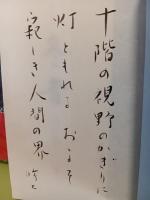 十階の視野のかぎりに
灯ともれる おゝそ
親しき人間の界